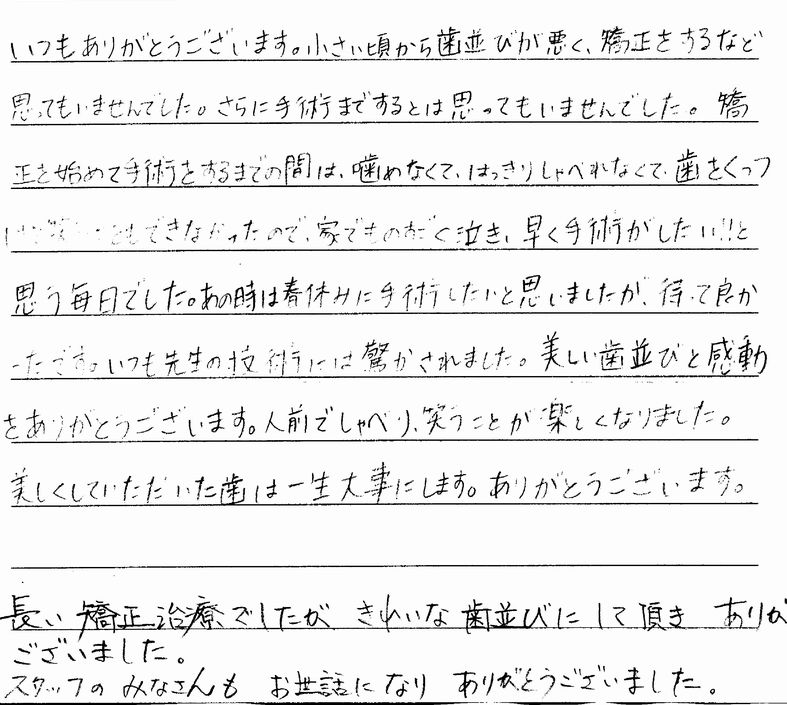 いつもありがとうございます。小さい頃から歯並びが悪く、矯正をするなど
思ってもいませんでした。さらに手術まですることは思ってもいませんでした。矯
正を始めて手術をするまでの間は、噛めなくて、はっきりしゃべれなくて、歯をくっつ
できなかったので、家でものすごく泣き、早く手術がしたい!!と
思う毎日でした。あの時は春休みに手術したいと思いましたが、待って良か
ったです。いつも先生の技術には驚かされました。美しい歯並びと感動
をありがとうございます。人前でしゃべり、笑うことが楽しくなりました。
美しくしていただいた歯は一生大事にします。ありがとうございます。
長い矯正治療でしたが きれいな歯並びにして頂き ありが
ございました。
スタッフのみなさんも お世話になり ありがとうございました。